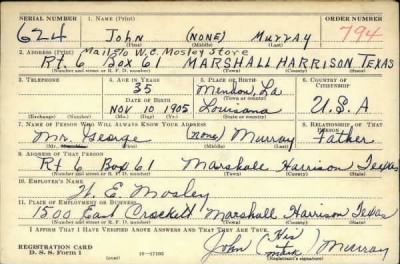 SERIAL NUMBER 1. NAME (Print) ORDER NUMBER
624 JOHN (NONE) MURRAY 794
(First) (Middle) (Last)
2. ADDRESS (Print) Mail c/o W.C. Mosley Store
Rt. 6 Box 61 MARSHALL HARRISON TEXAS
(Number and street or R. F. D. number) (Town) (County) (State)
3. TELEPHONE 4. AGE IN YEARS 5. PLACE OF BIRTH 6. COUNTRY OF CITIZENSHIP
35 La
DATE OF BIRTH (Town or county)
Nov. 10 1905 Louisiana U.S.A
(Exchange) (Number) (Mo.) (Day) (Yr.) (State or country)
7. NAME OF PERSON WHO WILL ALWAYS KNOW YOUR ADDRESS 8. RELATIONSHIP OF THAT PERSON
Mr. George (None) Murray Father
(First) (Middle) (Last)
9. ADDRESS OF THAT PERSON
Rt 6 Box 61 Marshall Harrison Texas
(Number and street or R. F. D. number) (Town) (County) (State)
10. EMPLOYER'S NAME
E. Mosley
11. PLACE OF EMPLOYMENT OR BUSINESS
1500 East Crockett Marshall Harrison Texas
(Number and street or R. F. D. number) (Town) (County) (State)
I AFFIRM THAT I HAVE VERIFIED ABOVE ANSWERS AND THAT THEY ARE TRUE.
REGISTRATION CARD
D. S. S. Form 1 (over) John (His mark) Murray